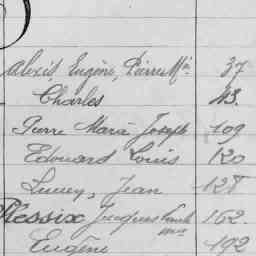 Alexis, Eugène, Pierre Mie 37
Charles 43.
Pierre Marie Joseph 109
Edouard Louis 120
Jean 128
Plessix Jacques 162
Eugène 192